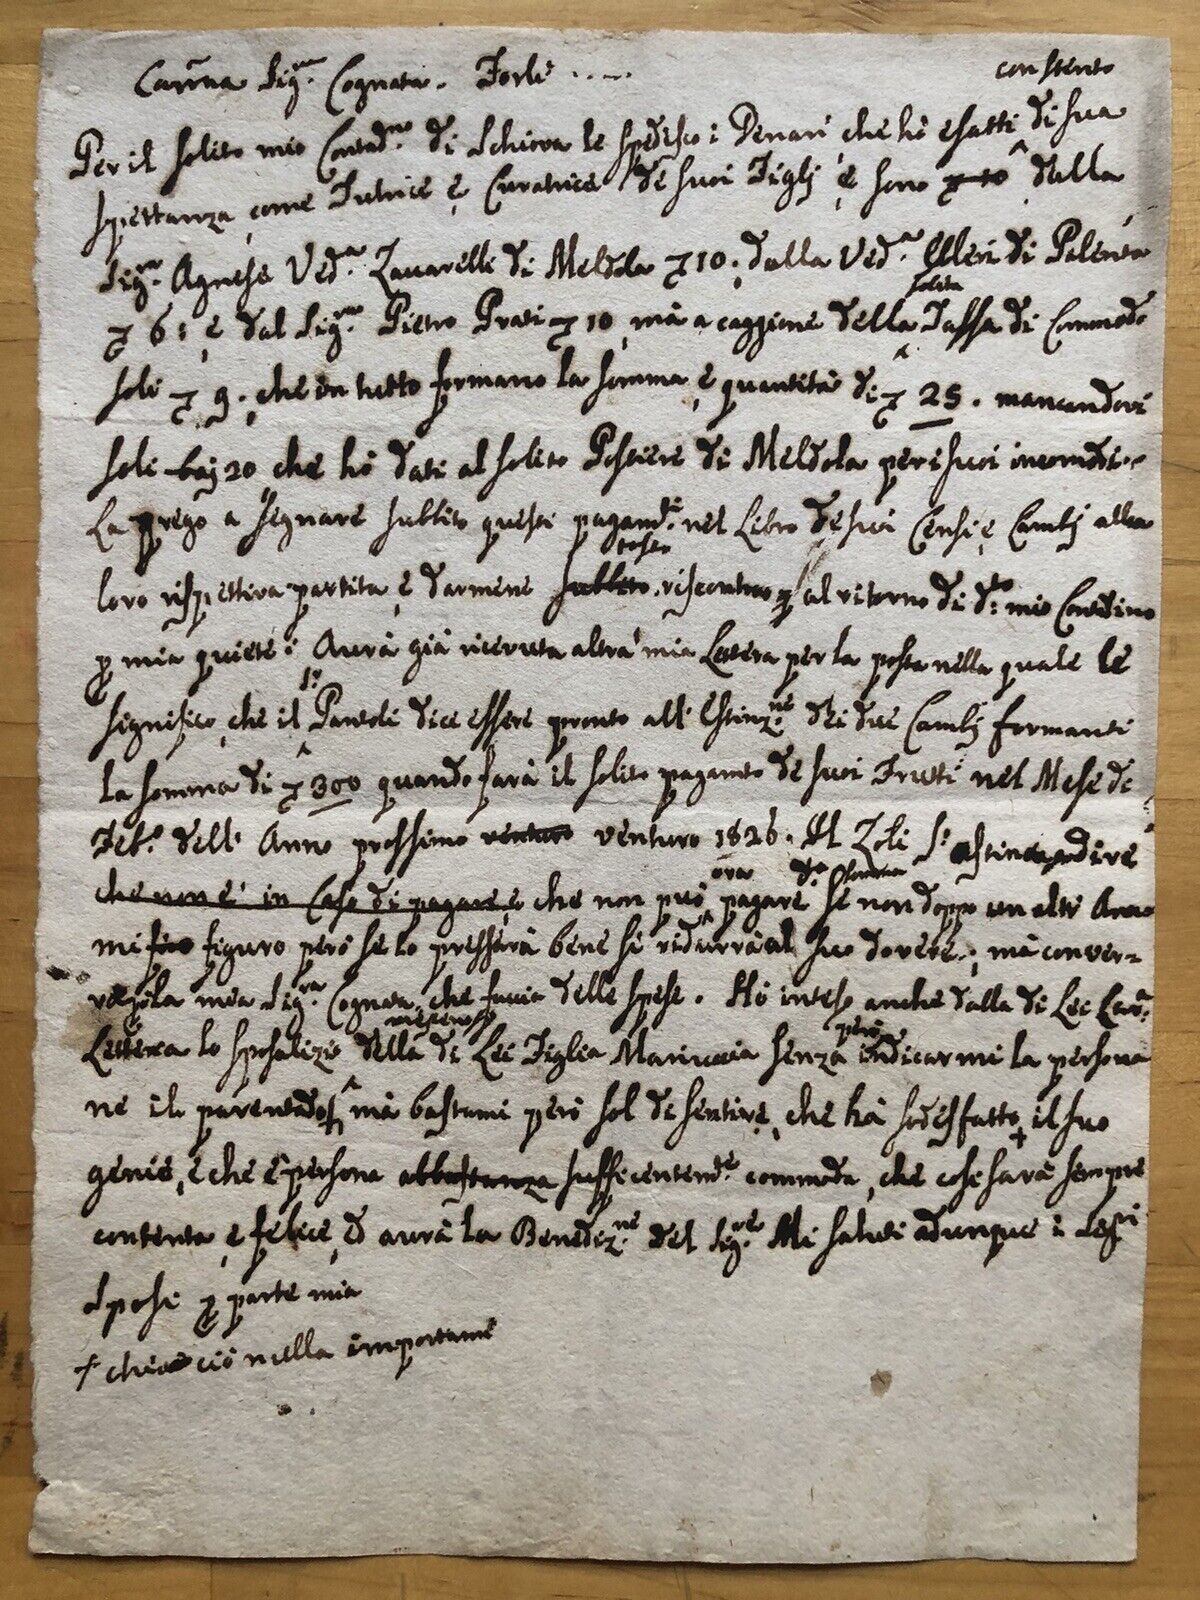 Car̃ma Sig.ra Cognata. Forlì .....
con stento
Per il solito mio Contad.no di Schiova le spedisco i Denari che hò esatti di sua
spettanza, come Tutrice e Curatrice de suoi Figlj, e sono dalla
Sig.ra Agnese Ved.a Zavarelli di Meldola 10; dalla Ved.a Elleri di Polenta
6: e dal Sig.re Pietro Prati 10, mà a caggione della solita Tassa di Commodo
soli 9. che in tutto formano la somma, e quantità di 25. mancandovi
soli baj 20 che hò dati al solito Postiere di Meldola per i suoi incomodi..
La prego a segnare subbito questi pagam.ti nel Libro de suoi Censi e Cambj alla
loro rispettiva partita, e darmene subbito tosto riscontro al ritorno di d.o mio Contadino
p mia quiete: Aurà già ricevuta altra mia Lettera per la posta nella quale le
significo, che il S.r Pantoli dice essere pronto all' Estinz.ne dei due Cambj formanti
la somma di 300 quando farà il solito pagamto de suoi Frutti nel Mese di
Feb.o dell' Anno prossimo venturo venturo 1826. Il Zoli s' ostina a dire
che non è in Caso di pagare, e che non può ora pagare d.a somma se non doppo un altro Anno
mi figuro però se lo presserà bene si ridurrà al suo dovere; mà conver=
rà, mia Sig.ra Cognata, che faccia delle spese. Hò inteso anche dalla di Lei Car.a
Lettera lo sposalizio della di Lei Figlia Mariuccia senza però indicarmi la persona
ne il parentado, mà bastami però sol di sentire, che hà sodisfatto + il suo
genio, e che è persona abbastanza sufficentem.te commoda, che così sarà sempre
contenta, e felice, ed aurà la Benediz.ne del Sig.re Mi saluti adunque i
Sposi p parte mia
+ ciò nulla importami